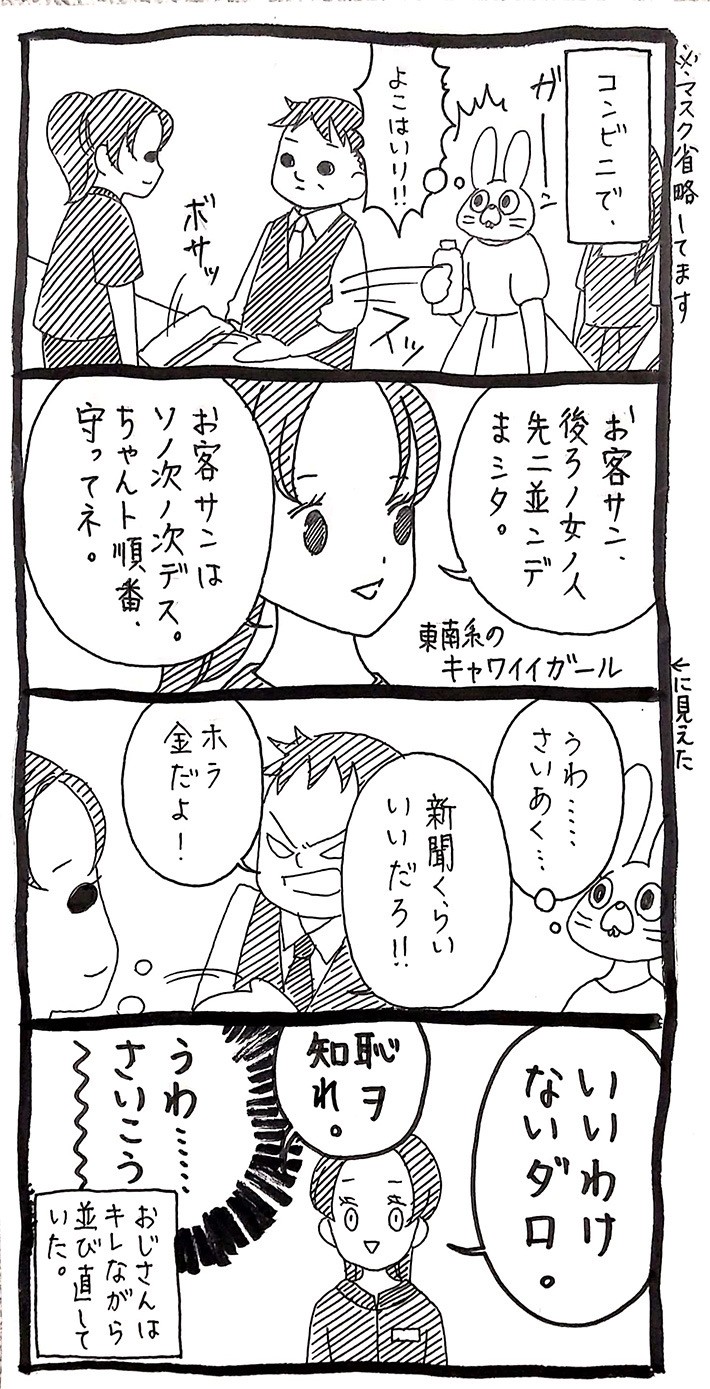 ※マスク省略してます
コンビニで、
ガーーン
よこはいり!!
ボサッ
スッ
お客サン、
後ろノ女ノ人
先ニ並ンデ
まシタ。
お客サンは
ソノ次ノ次デス。
ちゃんト順番、
守ってネ。
東南系の
キャワイイガール
←に見えた
うわ……
さいあく…
新聞くらい
いいだろ!!
ホラ
金だよ!
いいわけ
ないダロ。
恥ヲ
知れ。
うわ……
さいこう
おじさんは
キレながら
並び直して
いた。